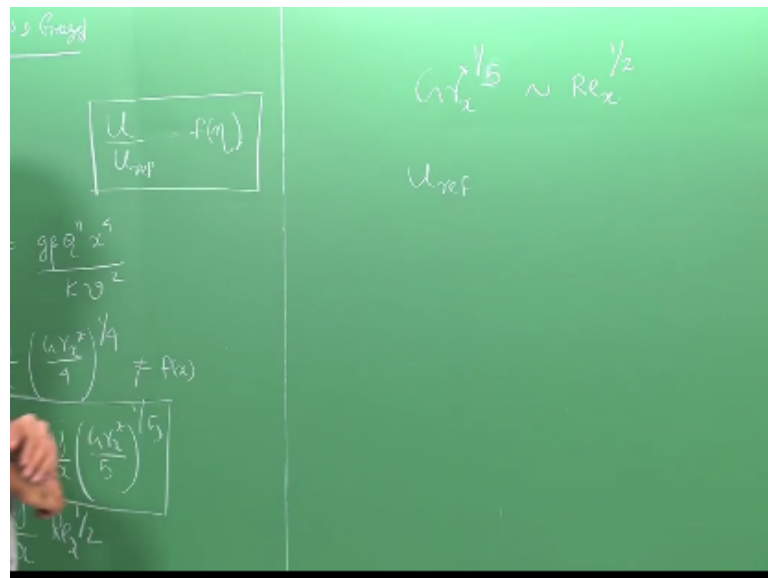 U/U_ref = f(η)
gβ Q" x^4 / K ν^2
(Gr_x^*/4)^1/4 ≠ f(x)
(Gr_x^*/5)^1/5
Re_x^1/2
Gr_x^*1/5 ~ Re_x^1/2
U_ref